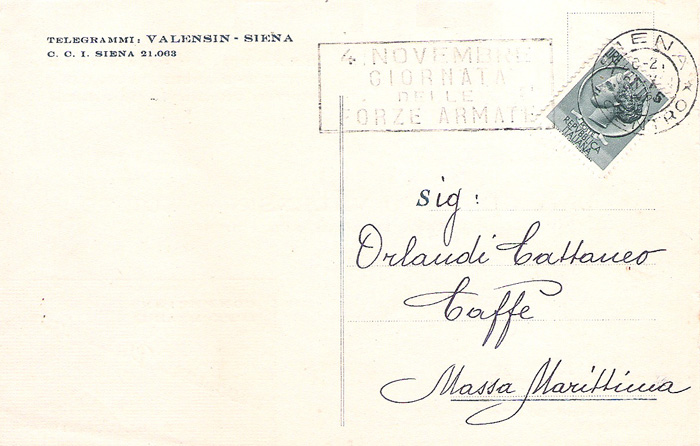 TELEGRAMMI: VALENSIN - SIENA
C. C. I. SIENA 21.063
4 NOVEMBRE
GIORNATA
DELLE
FORZE ARMATE
SIENA
CENTRO
REPUBBLICA
ITALIANA
Sig:
Orlandi Cattaneo
Caffè
Massa Marittima